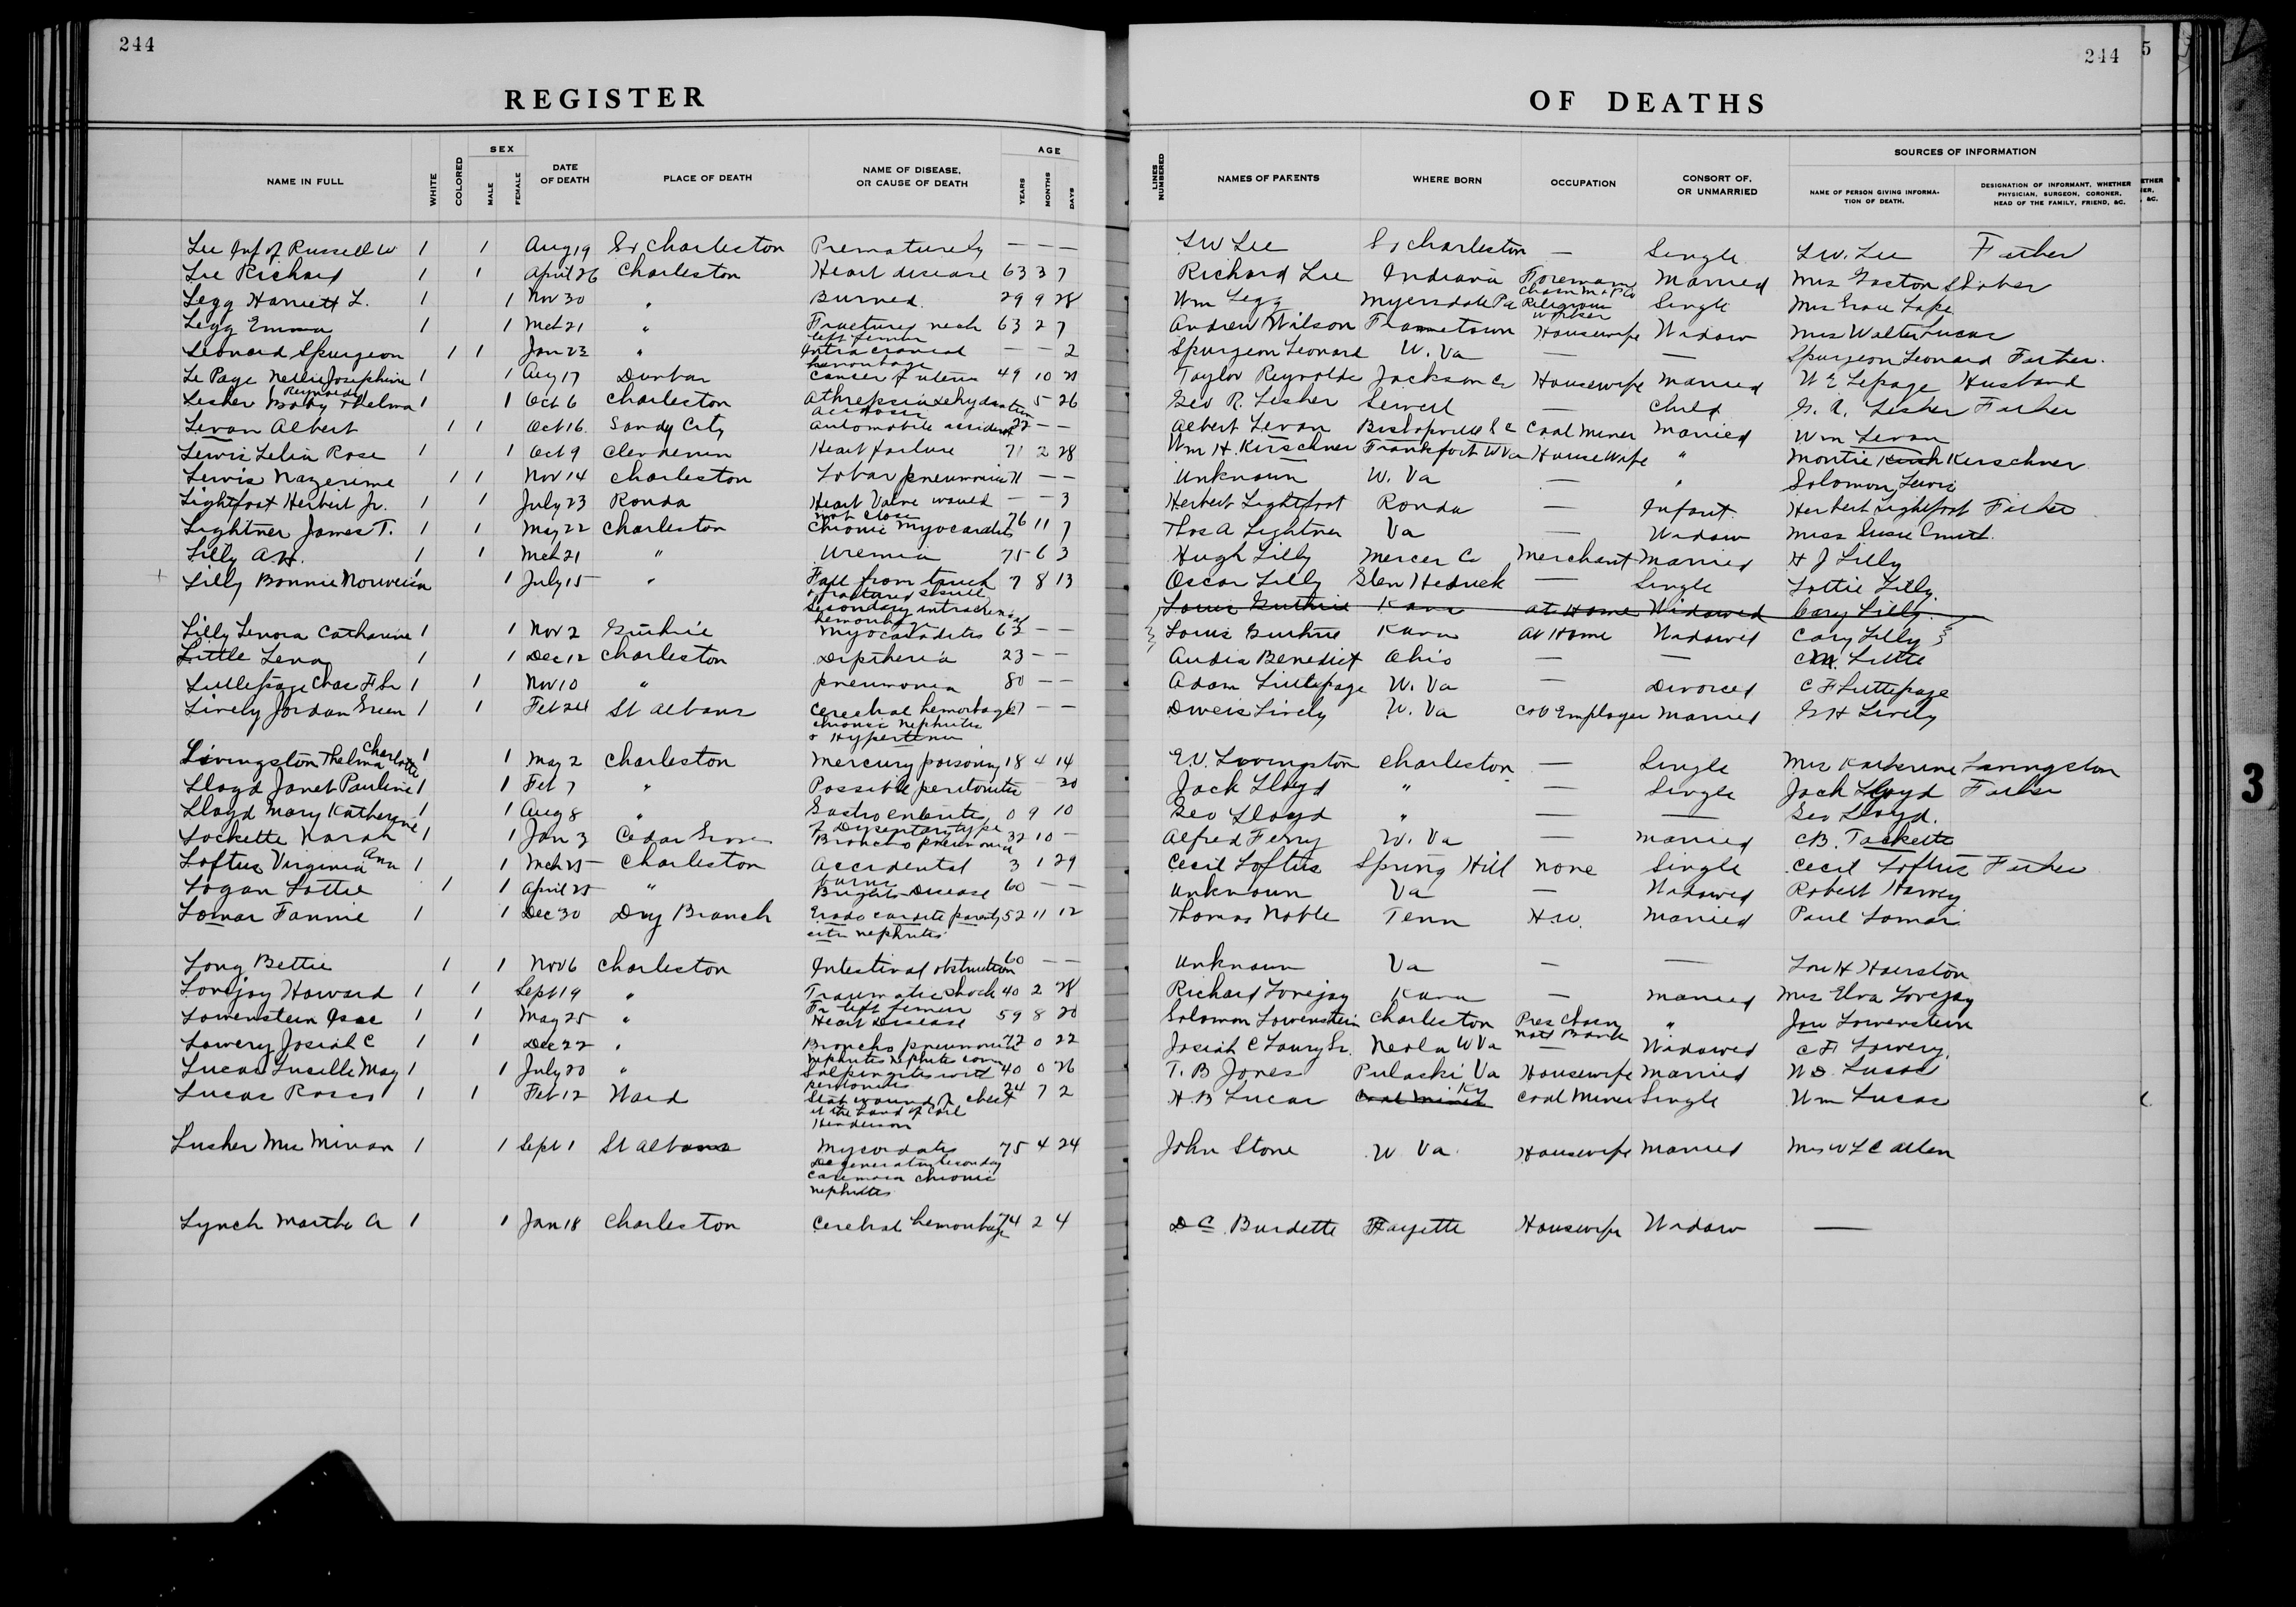 244
244
5
REGISTER
OF DEATHS
NAME IN FULL
WHITE
COLORED
SEX
MALE
FEMALE
DATE OF DEATH
PLACE OF DEATH
NAME OF DISEASE, OR CAUSE OF DEATH
AGE
YEARS
MONTHS
DAYS
LINES NUMBERED
NAMES OF PARENTS
WHERE BORN
OCCUPATION
CONSORT OF, OR UNMARRIED
SOURCES OF INFORMATION
NAME OF PERSON GIVING INFORMATION OF DEATH.
DESIGNATION OF INFORMANT, WHETHER PHYSICIAN, SURGEON, CORONER, HEAD OF THE FAMILY, FRIEND, &C.
Lee Inf of Russell W 1 1 Aug 19 So Charleston Prematurely — — — L W Lee So Charleston — Single L W. Lee Father
Lee Richard 1 1 April 26 Charleston Heart disease 63 3 7 Richard Lee Indiana Foreman Married Mrs Gaston
Legg Harriett L. 1 1 Nov 30 " Burned 29 9 28 Wm Legg Myersdale Pa Religious worker Single Mrs
Legg Emma 1 1 Mch 21 " Fractured neck left femur 63 2 7 Andrew Wilson Frametown Housewife Widow Mrs Walter Lucas
Leonard Spurgeon 1 1 Jan 23 " Intra cranial hemorhage — — 2 Spurgeon Leonard W. Va — — Spurgeon Leonard Father.
Le Page Nellie Josephine Reynolds 1 1 Aug 17 Dunbar Cancer of uterus 49 10 Taylor Reynolds Jackson Co Housewife Married W E Lepage Husband
Lesher Baby Thelma 1 1 Oct 6 Charleston Athrepsia dehydration acidosis 5 26 Geo R. Lesher Sewell — child G. R. Lesher Father
Levan Albert 1 1 Oct 16 Sandy City Automobile accident 22 — — Albert Levan Bishopville S C Coal Miner Married Wm Levan
Lewis Lelia Rose 1 1 Oct 9 Clendenin Heart failure 71 2 28 Wm H. Kerschner Frankfort W Va HouseWife " Montie Kersh Kerschner
Lewis Nazerime 1 1 Nov 14 Charleston Lobar pneumonia 71 — — Unknown W. Va — " Solomon Lewis
Lightfoot Herbert Jr. 1 1 July 23 Ronda Heart Valve would not close — — 3 Herbert Lightfoot Ronda — Infant Herbert Lightfoot Father
Lightner James T. 1 1 May 22 Charleston Chronic Myocarditis 76 11 7 Thos A Lightner Va Widow Miss Susie
Lilly A.H. 1 1 Mch 21 " Uremia 75 6 3 Hugh Lilly Mercer Co Merchant Married H J Lilly
+ Lilly Bonnie Nouveien 1 1 July 15 " Fall from truck & fractured skull Secondary intracranial hemorhage 7 8 13 Oscar Lilly Glen Hedrick — Single Lottie Lilly
Louis Guthrie Kana At Home Widowed Cary Lilly
Lilly Lenora Catharine 1 1 Nov 2 Guthrie Myocarditis 62 — — Louis Guthrie Kana At Home Widowed Cary Lilly
Little Lena 1 1 Dec 12 Charleston Diptheria 23 — — Audia Benedict Ohio — — Little
Littlepage Chas F Sr 1 1 Nov 10 " pneumonia 80 — — Adam Littlepage W. Va — Divorced C F Littlepage
Lively Jordan Green 1 1 Feb 24 St Albans Cerebral hemorhage chronic nephritis & Hypertension 67 — — Lively W. Va C&O Employee Married G H Lively
Livingston Thelma Charlotte 1 1 May 2 Charleston Mercury poisoning 18 4 14 E V. Livingston Charleston — Single Mrs Katherine Livingston
Lloyd Janet Pauline 1 1 Feb 7 " Possible peritonitis — 20 Jack Lloyd " — Single Jack Lloyd Father
Lloyd Mary Katherine 1 1 Aug 8 " Gastro enteritis of Dysentary type 0 9 10 Geo Lloyd " — — Geo Lloyd.
Lockette Narah 1 1 Jan 3 Cedar Grove Broncho pneumonia 32 10 — Alfred Ferry W. Va — Married C B. Tackette
Loftus Virginia Ann 1 1 Mch 25 Charleston Accidental burns 3 1 29 Cecil Loftus Spring Hill None Single Cecil Loftus Father
Logan Lottie 1 1 April 25 " Brights Disease 60 — — Unknown Va — Widowed Robert Harvey
Lomar Fannie 1 1 Dec 30 Dry Branch nephritis 52 11 12 Thomas Noble Tenn H W. Married Paul Lomar
Long Bettie 1 1 Nov 6 Charleston Intestinal obstruction 60 — — Unknown Va — — Lou H Hairston
Lovejoy Howard 1 1 Sept 19 " Traumatic shock Fr left femur 40 2 28 Richard Lovejoy Kana — Married Mrs Elva Lovejoy
Lowenstein Isac 1 1 May 25 " Heart Disease 59 8 20 Solomon Lowenstein Charleston Pres Chasn Natl Bank " Joe Lowenstein
Lowery Josiah C 1 1 Dec 22 " Broncho pneumonia 72 0 22 Josiah C Lowry Sr. Neola W Va — Widowed C F Lowery
Lucas Lucille May 1 1 July 20 " Salpingitis with peritonitis 40 0 26 T. B Jones Pulaski Va Housewife Married W D. Lucas
Lucas Rosco 1 1 Feb 12 Ward Stab wound of chest at the hand of Carl Henderson 24 7 2 H. B Lucas Coal Miner Ky Coal Miner Single Wm Lucas
Lusher Mrs Mirian 1 1 Sept 1 St Albans Mycordatis Degenerative Secondary chronic nephritis 75 4 24 John Stone W Va. Housewife Married Mrs W L C Allen
Lynch Martha A 1 1 Jan 18 Charleston Cerebral hemorrhage 74 2 4 D C. Burdette Fayette Housewife Widow —
3